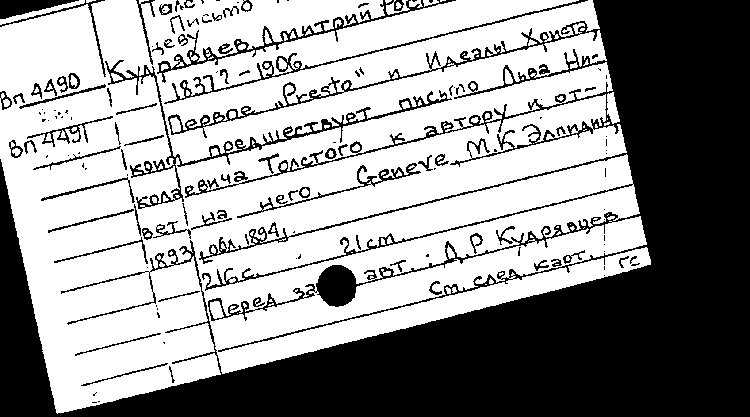 Толст
Письмо
цеву
Вп 4490 Кудрявцев, Дмитрий Рост
1837? – 1906.
Первое „Presto" и Идеалы Христа,
Вп 4491 коим предшествует письмо Льва Ни-
колаевича Толстого к автору и от-
вет на него. Geneve, М.К. Элпидин,
1893 [обл. 1894].
216 с. 21 cm.
Перед за авт.: Д.Р. Кудрявцев
См. след. карт. гс